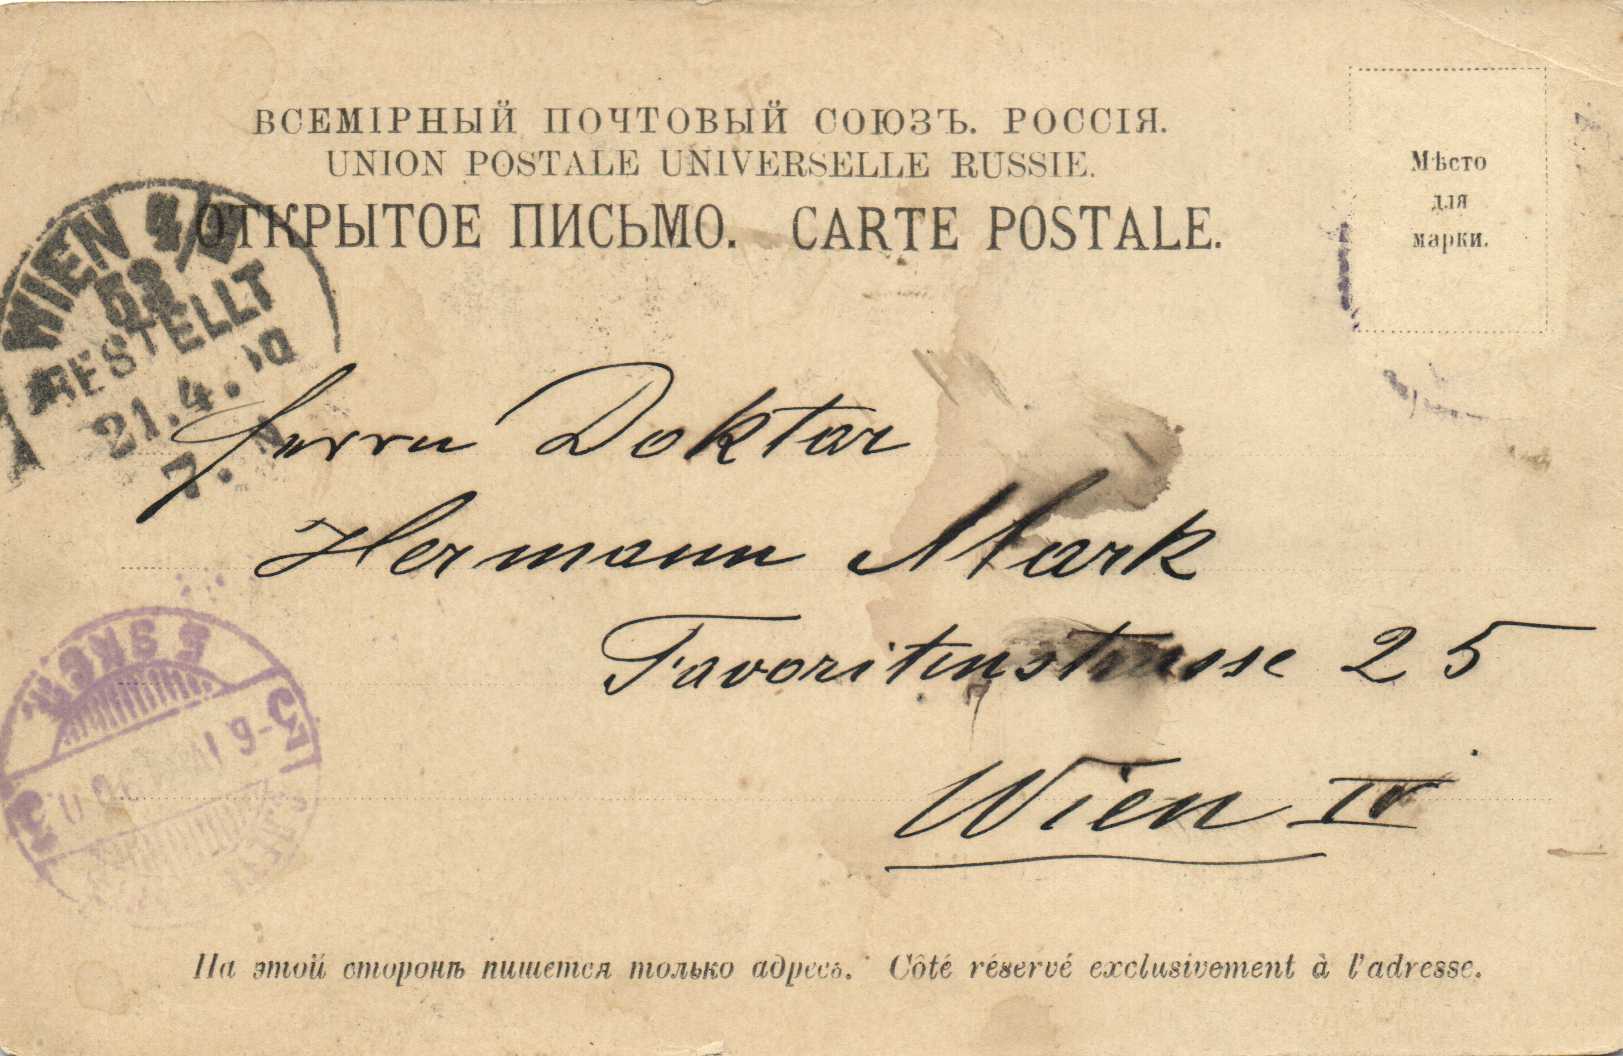 ВСЕМІРНЫЙ ПОЧТОВЫЙ СОЮЗЪ. РОССІЯ.
UNION POSTALE UNIVERSELLE RUSSIE.
ОТКРЫТОЕ ПИСЬМО. CARTE POSTALE.
Мѣсто
для
марки.
WIEN
BESTELLT
21.4.
7.
Herrn Doktor
Hermann Mark
Favoritenstrasse 25
Wien IV
3
3
На этой сторонѣ пишется только адресъ. Côté réservé exclusivement à l'adresse.